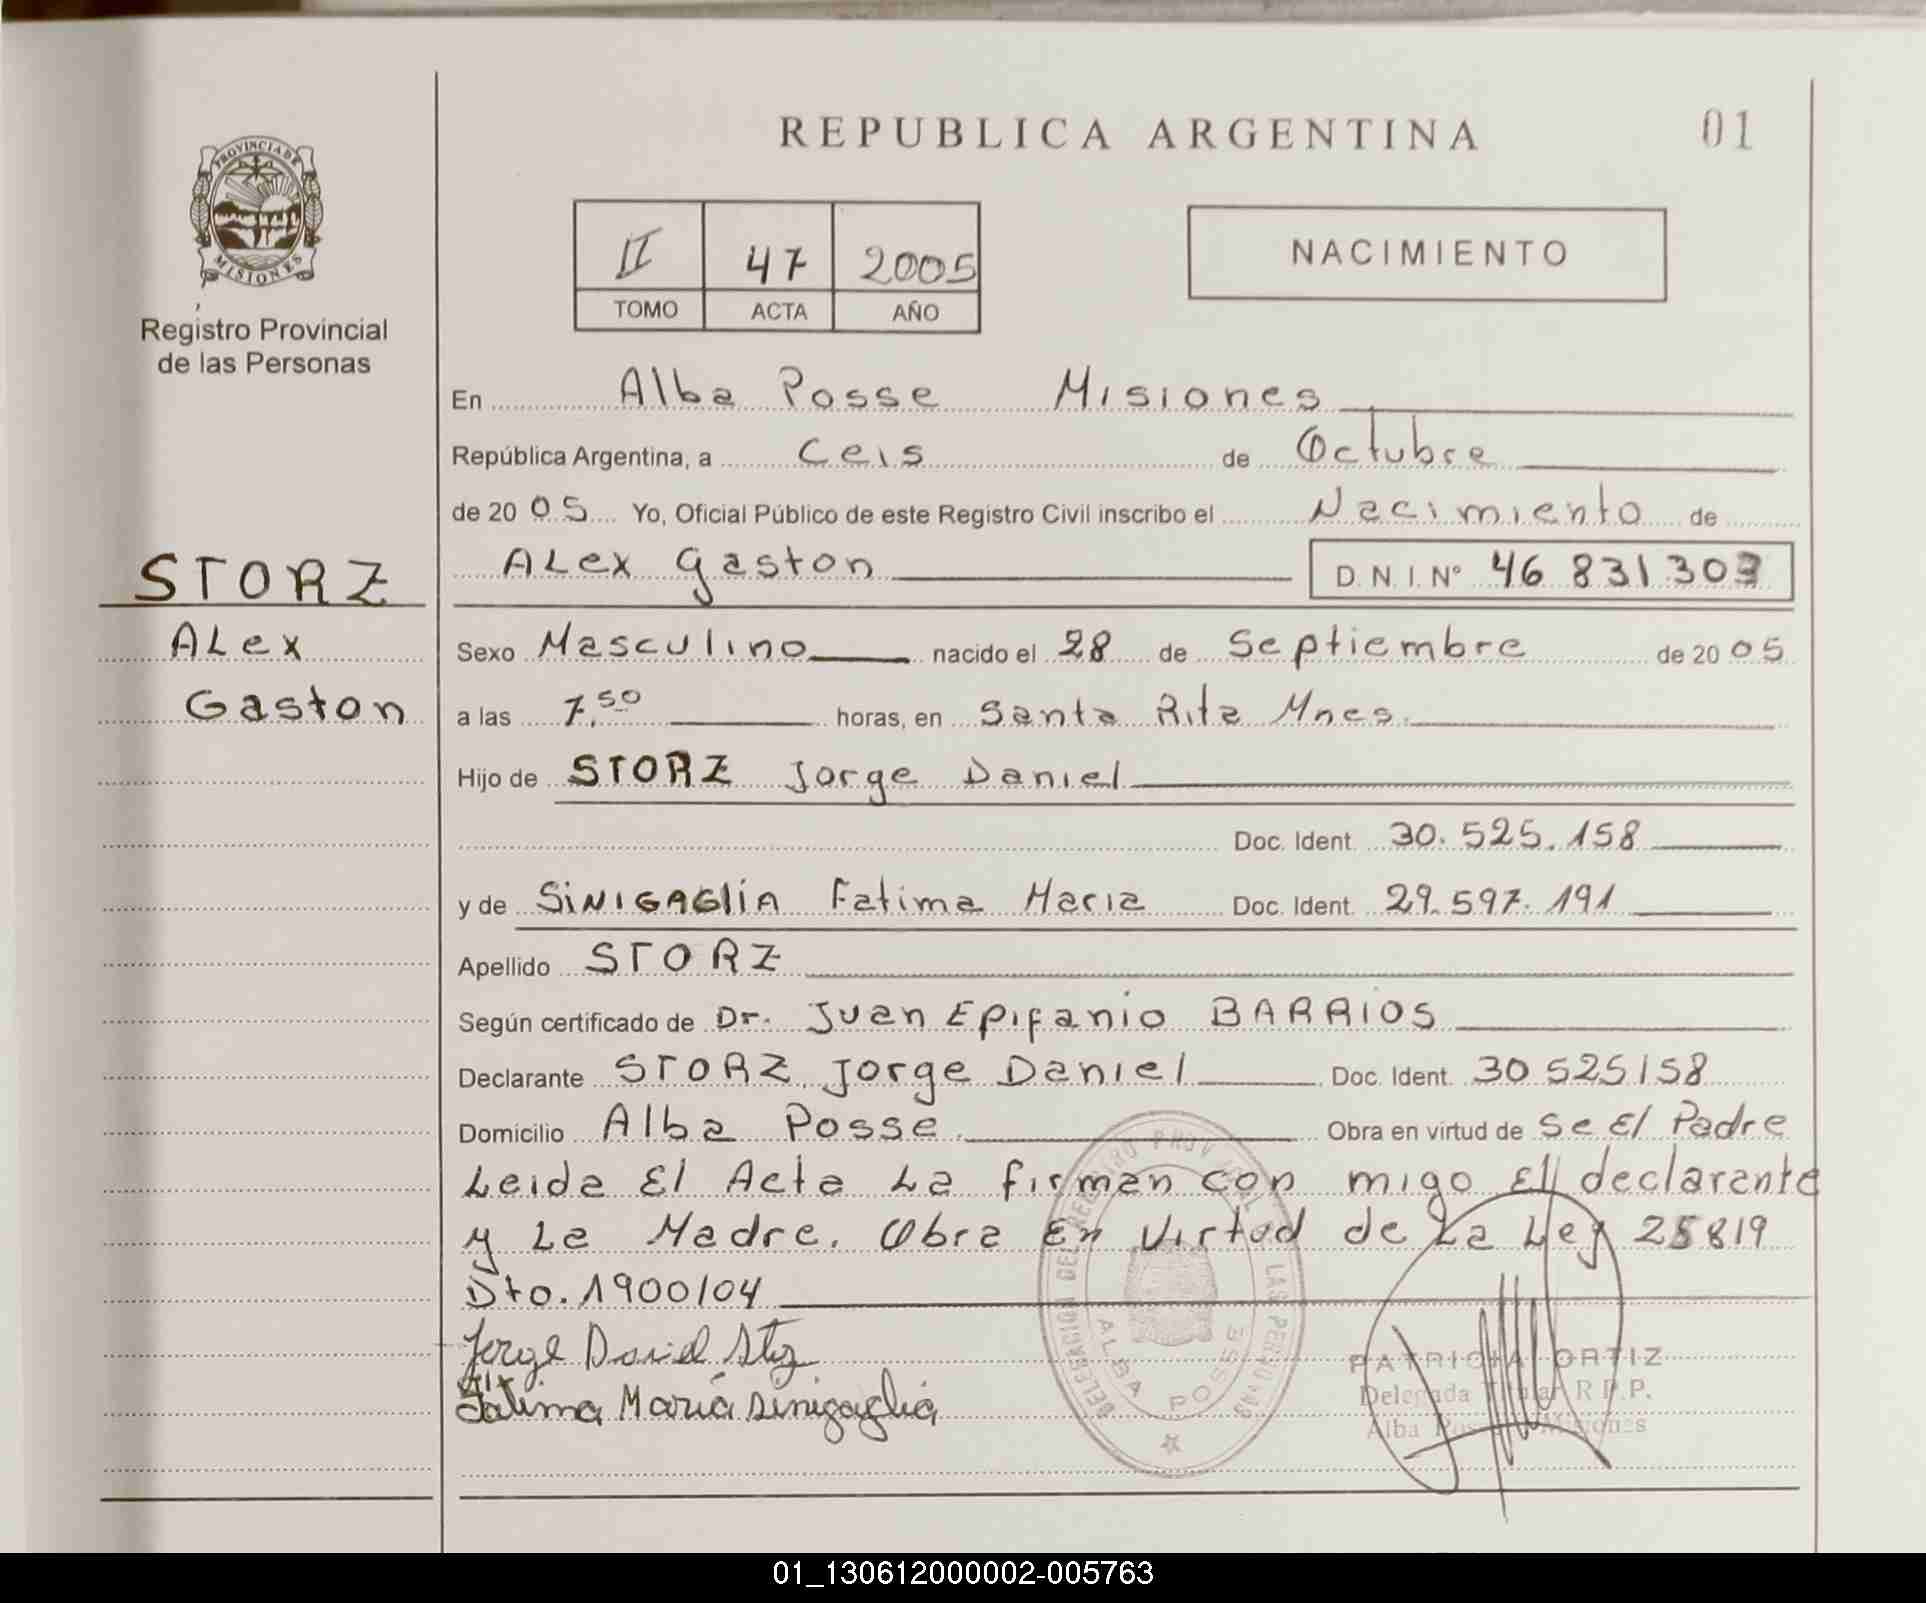 PROVINCIA DE
MISIONES
Registro Provincial
de las Personas
STORZ
ALex
Gaston
REPUBLICA ARGENTINA
01
II 47 2005
TOMO ACTA AÑO
NACIMIENTO
En Alba Posse Misiones
República Argentina, a Ceis de Octubre
de 2005 Yo, Oficial Público de este Registro Civil inscribo el Nacimiento de
ALex Gaston D.N.I. N° 46 831 303
Sexo Masculino nacido el 28 de Septiembre de 2005
a las 7.50 horas, en Santa Rita Mnes.
Hijo de STORZ Jorge Daniel
Doc. Ident. 30.525.158
y de SiNIGAGliA Fatima Maria Doc. Ident. 29.597.191
Apellido STORZ
Según certificado de Dr. Juan Epifanio BARRIOS
Declarante STORZ Jorge Daniel Doc. Ident. 30 525158
Domicilio Alba Posse. Obra en virtud de Se El Padre
Leida El Acta La firman con migo El declarante
y La Madre. Obra En Virtud de La Ley 25819
Dto. 1900/04
Jorge Daniel
Fátima María Sinigaglia
DELEGACION DEL REGISTRO PROVINCIAL LAS PERSONAS
ALBA POSSE
PATRICIA ORTIZ
Delegada Titular R.P.P.
Alba Posse Misiones
01_130612000002-005763